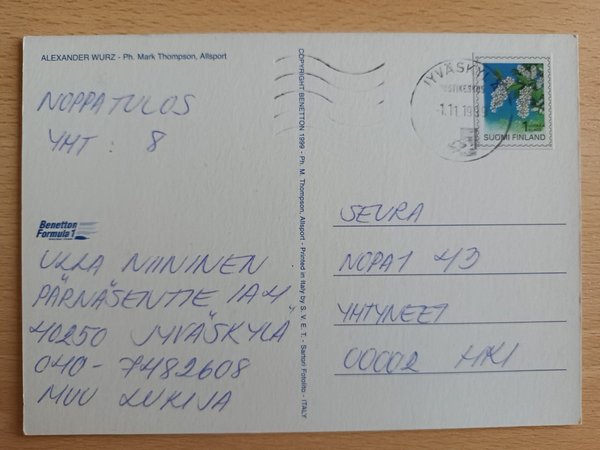 ALEXANDER WURZ - Ph. Mark Thompson, Allsport
NOPPATULOS
YHT : 8
Benetton
Formula 1
ULLA NIININEN
PÄRNÄSENTIE 1A 4
40250 JYVÄSKYLÄ
040-7482608
MUU LUKIJA
COPYRIGHT BENETTON 1999 - Ph. M. Thompson, Allsport - Printed in Italy by S. V. E. T. - Sartori Fotolito - ITALY
JYVÄSKY
-1.11.19
1
SUOMI FINLAND
SEURA
NOPAT 43
YHTYNEET
00002 HKI